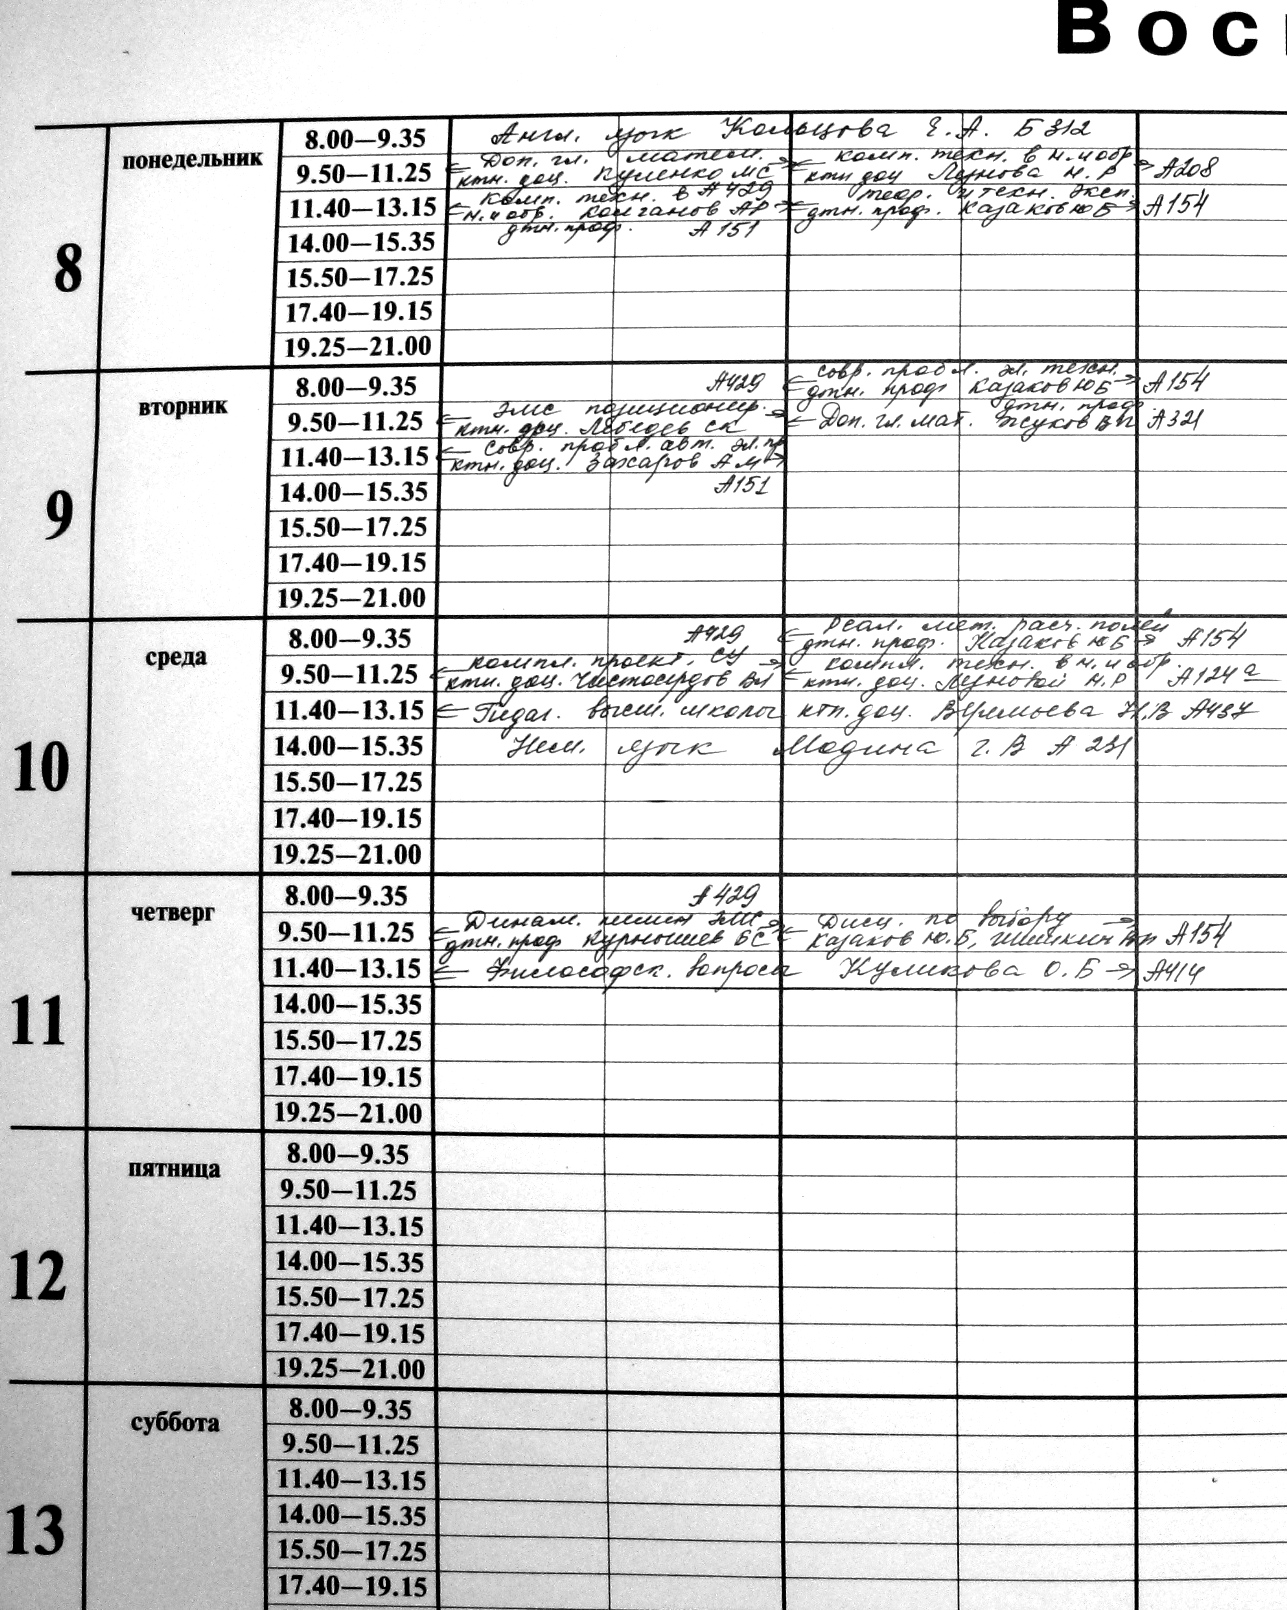 Вос
8
понедельник
8.00—9.35 Англ. язык Кольцова Е.А. Б 312
Доп. гл. матем. комп. техн. в н. и обр.
9.50—11.25 ктн. доц. Куленко МС ктн доц Н.Р А208
Комп. техн. в А429 теор. и техн. эксп.
11.40—13.15 н. и обр. Колганов АР дтн. проф. Казаков Ю Б А154
дтн. проф. А 151
14.00—15.35
15.50—17.25
17.40—19.15
19.25—21.00
9
вторник
совр. пробл. эл. техн.
8.00—9.35 А429 дтн. проф Казаков Ю Б А154
ЭМС позиционир. дтн. проф
9.50—11.25 ктн. доц. Лебедев СК Доп. гл. мат. Жуков ВП А321
совр. пробл. авт. эл. пр
11.40—13.15 ктн. доц. Захаров А М
14.00—15.35 А151
15.50—17.25
17.40—19.15
19.25—21.00
10
среда
мет. расч. полей
8.00—9.35 А429 дтн. проф. Казаков Ю Б А154
компл. проект. СУ компл. техн. в н. и обр.
9.50—11.25 ктн. доц. Чистосердов ВЛ ктн. доц. Н.Р А124а
11.40—13.15 Педаг. высш. школы кпн. доц. Н.В А437
14.00—15.35 Нем. язык Модина Г. В А 231
15.50—17.25
17.40—19.15
19.25—21.00
11
четверг
8.00—9.35 А429
Динам. ЭМС Дисц. по выбору
9.50—11.25 дтн. проф Курнышев БС Казаков Ю. Б, Шишкин А154
11.40—13.15 Философск. вопросы Куликова О. Б А414
14.00—15.35
15.50—17.25
17.40—19.15
19.25—21.00
12
пятница
8.00—9.35
9.50—11.25
11.40—13.15
14.00—15.35
15.50—17.25
17.40—19.15
19.25—21.00
13
суббота
8.00—9.35
9.50—11.25
11.40—13.15
14.00—15.35
15.50—17.25
17.40—19.15